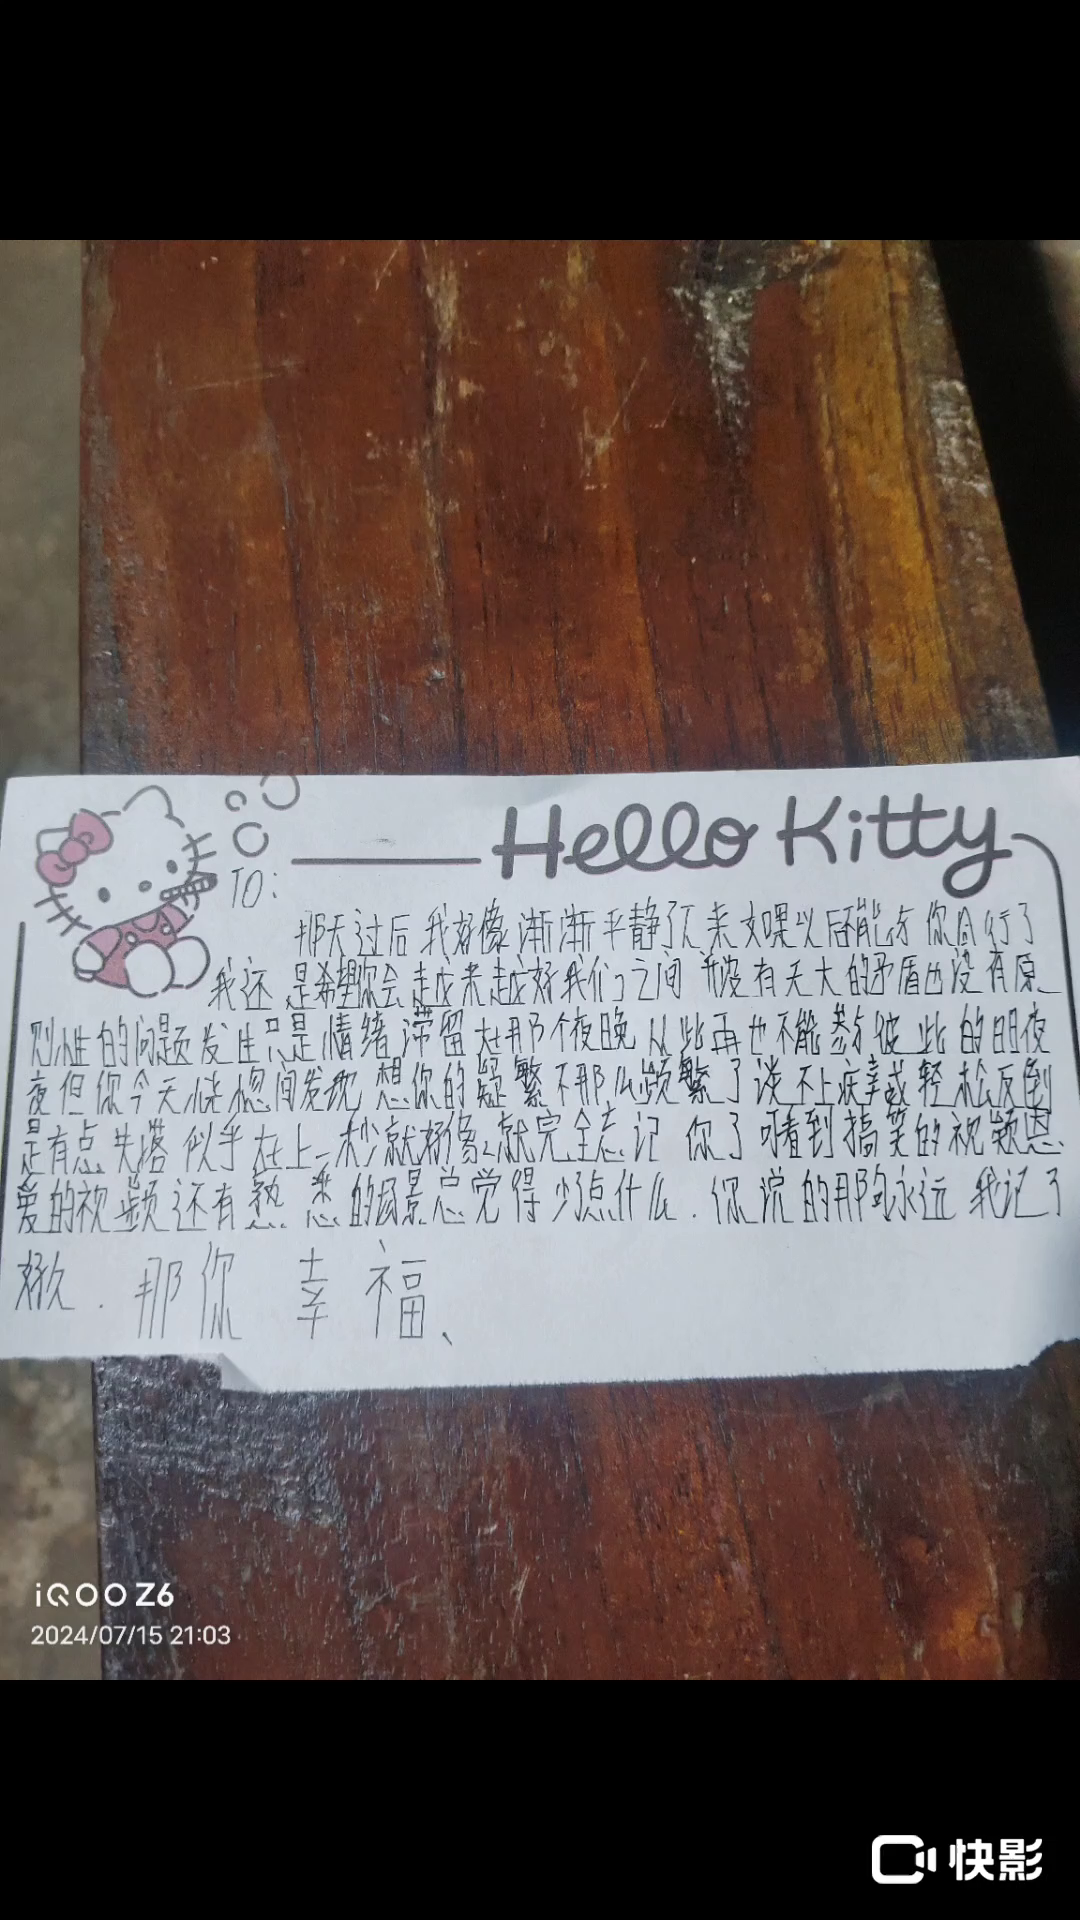 Hello Kitty
TO:
那天过后 我好像渐渐平静了下来 如果以后不能与你同行了
我还是希望你会越来越好 我们之间 并没有天大的矛盾也没有原
则性的问题发生只是情绪滞留在那个夜晚 从此再也不能参与彼此的日日夜
夜但你今天恍惚间发现 想你的 繁不那么频繁了谈不上 或轻松反倒
是有点失落 似乎在上一秒就好像 就完全忘记 你了 可看到搞笑的视频恩
爱的视频还有熟悉的场景总觉得少点什么. 你说的那句永远 我记了
好久. 那你 幸福、
iQOO Z6
2024/07/15 21:03
快影